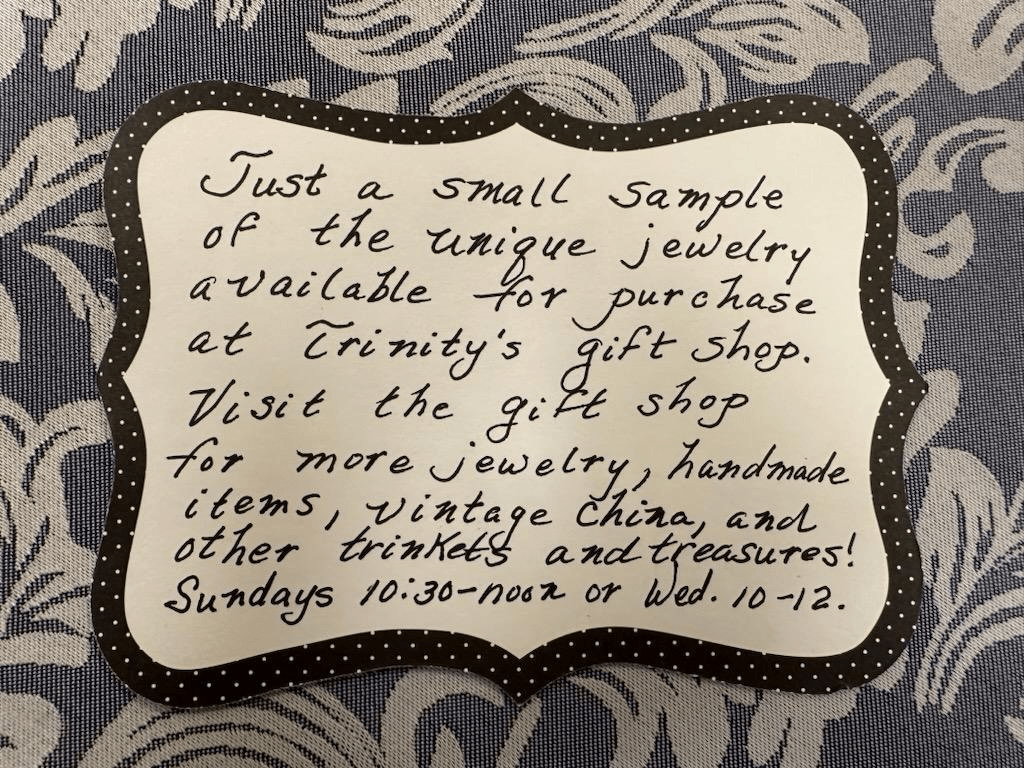 Just a small sample
of the unique jewelry
available for purchase
at Trinity's gift shop.
Visit the gift shop
for more jewelry, handmade
items, vintage china, and
other trinkets and treasures!
Sundays 10:30-noon or Wed. 10-12.